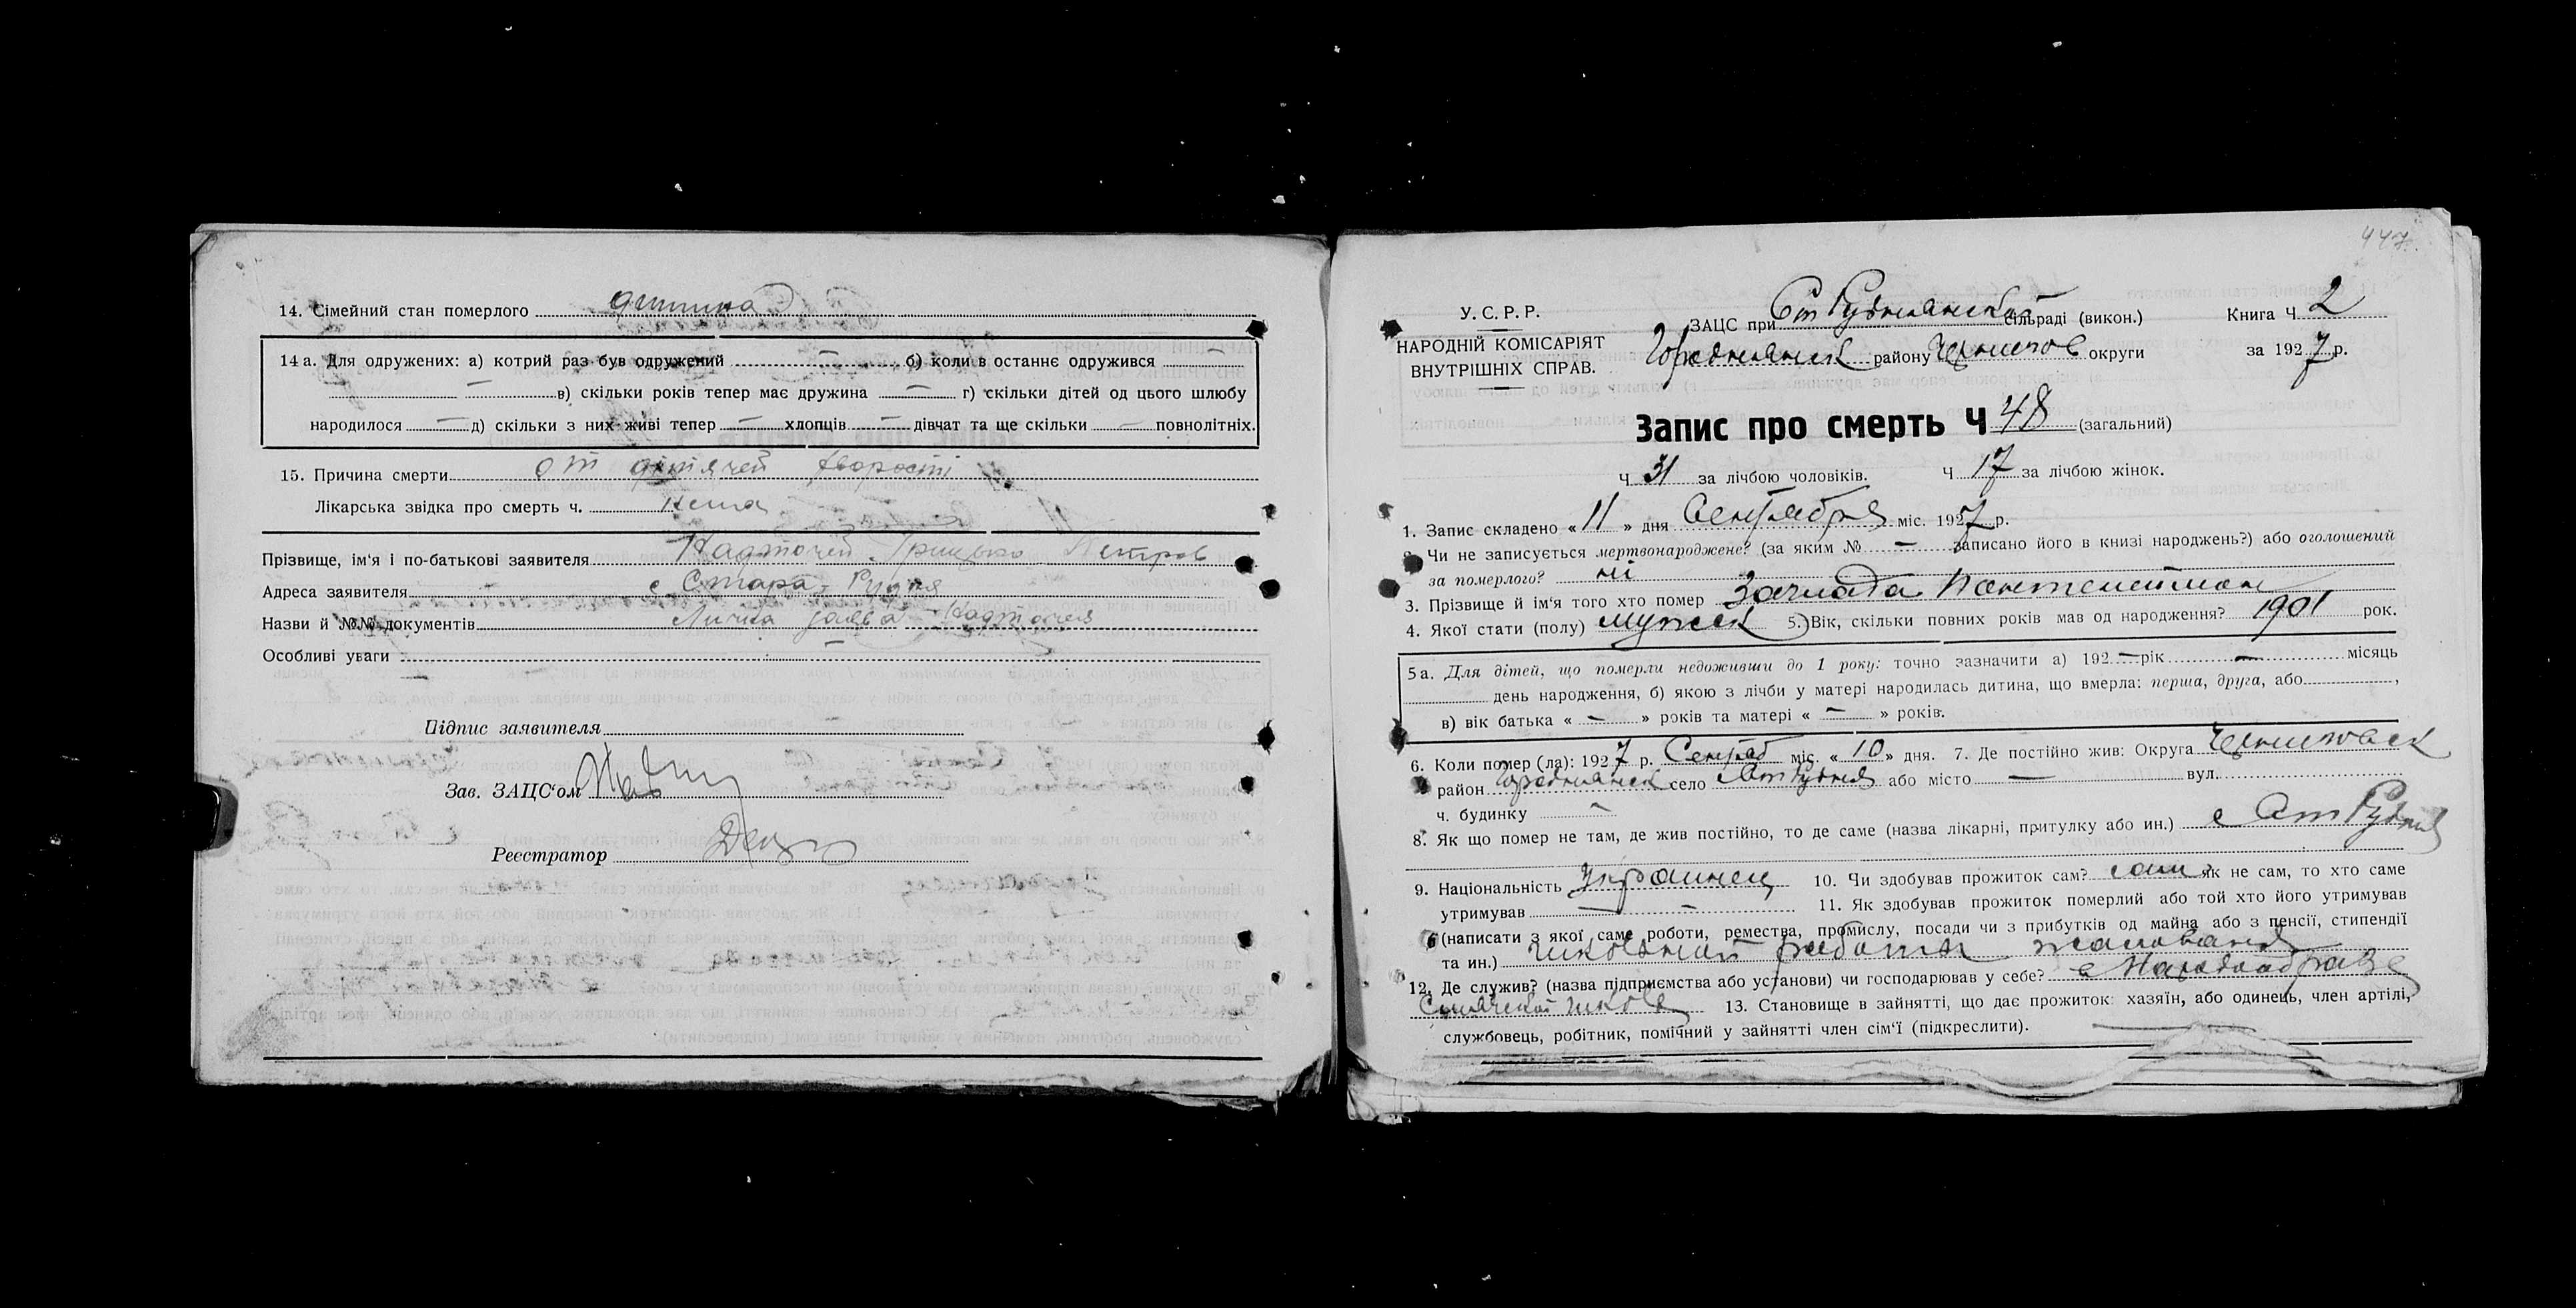 14. Сімейний стан померлого дитина
14 а. Для одружених: а) котрий раз був одружений — б) коли в останнє одружився —
— — в) скільки років тепер має дружина — г) скільки дітей од цього шлюбу
народилося — д) скільки з них живі тепер — хлопців — дівчат та ще скільки — повнолітніх.
15. Причина смерти от дітячей хворості
Лікарська звідка про смерть ч. нема
Прізвище, ім'я і по-батькові заявителя Надточей Грицько Петров
Адреса заявителя с Стара Рудня
Назви й №№ документів Лична заява Надточея
Особливі уваги —
Підпис заявителя
Зав. ЗАЦС'ом
Реєстратор
447
У. С. Р. Р.
НАРОДНІЙ КОМІСАРІЯТ
ВНУТРІШНІХ СПРАВ.
ЗАЦС при Ст Руднянской сільраді (викон.) Книга Ч 2
Городнянск району Чернигов округи за 1927 р.
Запис про смерть Ч 48 (загальний)
Ч 31 за лічбою чоловіків. Ч 17 за лічбою жінок.
1. Запис складено « 11 » дня Сентября міс. 1927 р.
2. Чи не записується мертвонароджене? (за яким № — записано його в книзі народжень?) або оголошений
за померлого? ні
3. Прізвище й ім'я того хто помер Пантелеймон
4. Якої стати (полу) мужск 5. Вік, скільки повних років мав од народження? 1901 рок.
5 а. Для дітей, що померли недоживши до 1 року: точно зазначити а) 192 — рік — місяць
день народження, б) якою з лічби у матері народилась дитина, що вмерла: перша, друга, або ,
в) вік батька « — » років та матері « — » років.
6. Коли помер (ла): 1927 р. Сентяб міс. « 10 » дня. 7. Де постійно жив: Округа Черниговск
район Городнянск село Ст Рудня або місто — вул.
ч. будинку —
8. Як що помер не там, де жив постійно, то де саме (назва лікарні, притулку або ин.) с Ст Рудня
9. Національність Украинец 10. Чи здобував прожиток сам? сам як не сам, то хто саме
утримував — 11. Як здобував прожиток померлий або той хто його утримував
(написати з якої саме роботи, ремества, промислу, посади чи з прибутків од майна або з пенсії, стипендії
та ин.) школьной работы жалования
12. Де служив? (назва підприємства або установи) чи господарював у себе? в Народобразе
школе 13. Становище в зайнятті, що дає прожиток: хазяїн, або одинець, член артілі,
службовець, робітник, помічний у зайнятті член сім'ї (підкреслити).